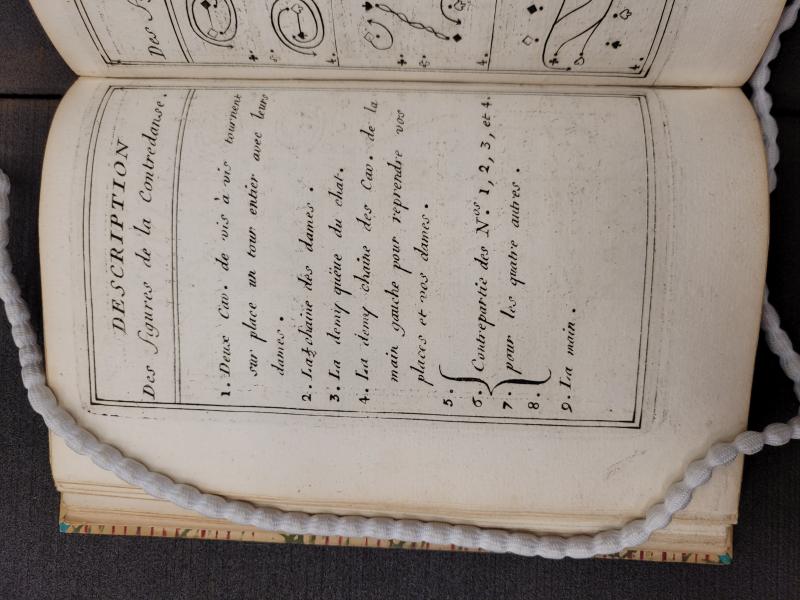 DESCRIPTION
Des figures de la Contredanse.
1. Deux Cav. de vis à vis tournent
sur place un tour entier avec leurs
dames.
2. La chaine des dames.
3. La demy quëue du chat.
4. La demy chaine des Cav. de la
main gauche pour reprendre vos
places et vos dames.
5.
6. Contrepartie des Nos. 1, 2, 3, et 4.
7. pour les quatre autres.
8.
9. La main.
Des
4.
4.
4.
4.
4.